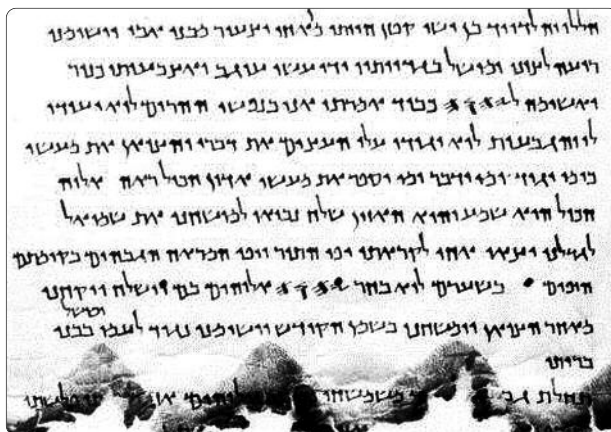 הללויה לדויד בן ישי קטן הייתי מן אחי וצעיר מבני אבי וישימני
רועה לצונו ומושל בגדיותיו ידי עשו עוגב ואצבעותי כנור
ואשימה ל𐤉𐤄𐤅𐤄 כבוד אמרתי אני בנפשי ההרים לוא יעידו
לי והגבעות לוא יגידו עלו העצים את דברי והצואן את מעשי
כי מי יגיד ומי ידבר ומי יספר את מעשי אדון הכול ראה אלוה
הכול הוא שמע והוא האזין שלח נביאו למושחני את שמואל
לגדלני יצאו אחי לקראתו יפי התור ויפי המראה הגבהים בקומתם
היפים בשערם לוא בחר 𐤉𐤄𐤅𐤄 אלוהים בם וישלח ויקחני
ומושל
מאחר הצואן וימשחני בשמן הקודש וישימני נגיד לעמו בבני
בריתו
תחלת משמשחו אלוהים פלשתי